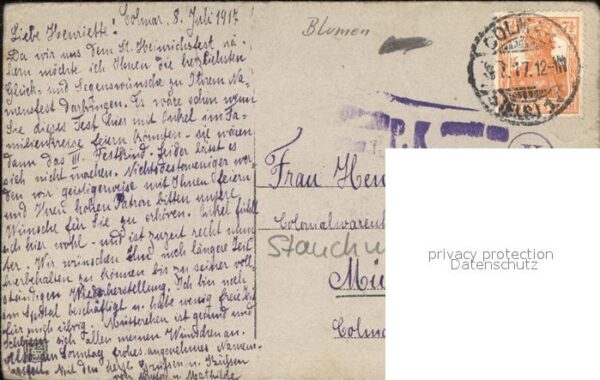 Colmar, 8. Juli 1917
Liebe Henriette!
Da wir uns dem St. Heinrichsfest nä-
hern möchte ich Ihnen die herzlichsten
Glück- und Segenswünsche zu Ihrem Na-
mensfest darbringen. Es wäre schön wenn
Sie dieses Fest hier mit Onkel im Fa-
milienkreise feiern könnten - sie wären
dann das III. Festkind. Leider lässt es
sich nicht machen. Nichtsdestoweniger wer-
den wir geistigerweise mit Ihnen feiern
und Ihren hohen Patron bitten unsere
Wünsche für Sie zu erhören. Onkel fühlt
sich hier wohl - und ist zurzeit recht mun-
ter. Wir wünschen Ihn noch längere Zeit
hierbehalten zu können bis zu seiner voll-
ständigen Wiederherstellung. Ich bin noch
im Spital beschäftigt u. habe wenig freie Zeit
für mich übrig. Mütterchen ist gesund und
schliesst sich allen meinen Wünschen an.
Also am Sonntag frohes angenehmes Namens-
Mit den herzl. Grüssen u. Küssen
u. Mathilde
Blumen
COLMAR
7½
8.7.17.12-1N
(ELS)
P.K.
Frau Hen
Colonialwaren
Stauch
Mü
Colma
privacy protection
Datenschutz